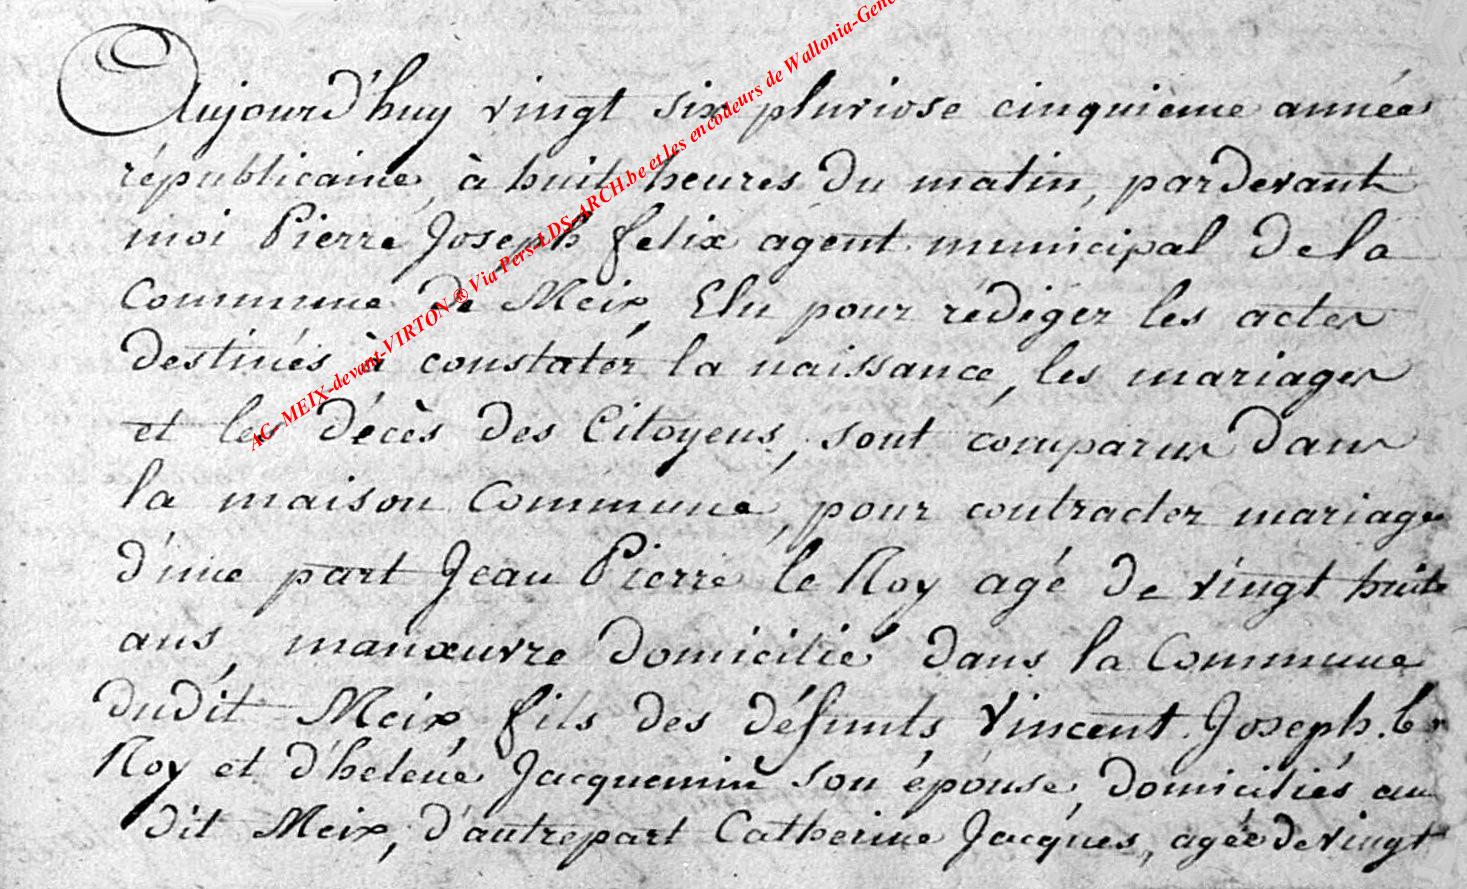 Aujourd'huy vingt six pluviose cinquieme année
républicaine, à huit heures du matin, pardevant
moi Pierre Joseph felix agent municipal de la
Commune de Meix, Elu pour rédiger les actes
destinés à constater la naissance, les mariages
et les décès des Citoyens, sont comparus dans
la maison Commune, pour contracter mariage
d'une part Jean Pierre le Roy agé de vingt huit
ans, manœuvre domicilié dans la Commune
dudit Meix, fils des défunts Vincent Joseph le
Roy et d'helene Jacquemin son épouse, domiciliés au
dit Meix, d'autrepart Catherine Jacques, agée de vingt
AC_MEIX-devant-VIRTON ® Via Pers-LDS-ARCH.be et les encodeurs de Wallonia-Gene